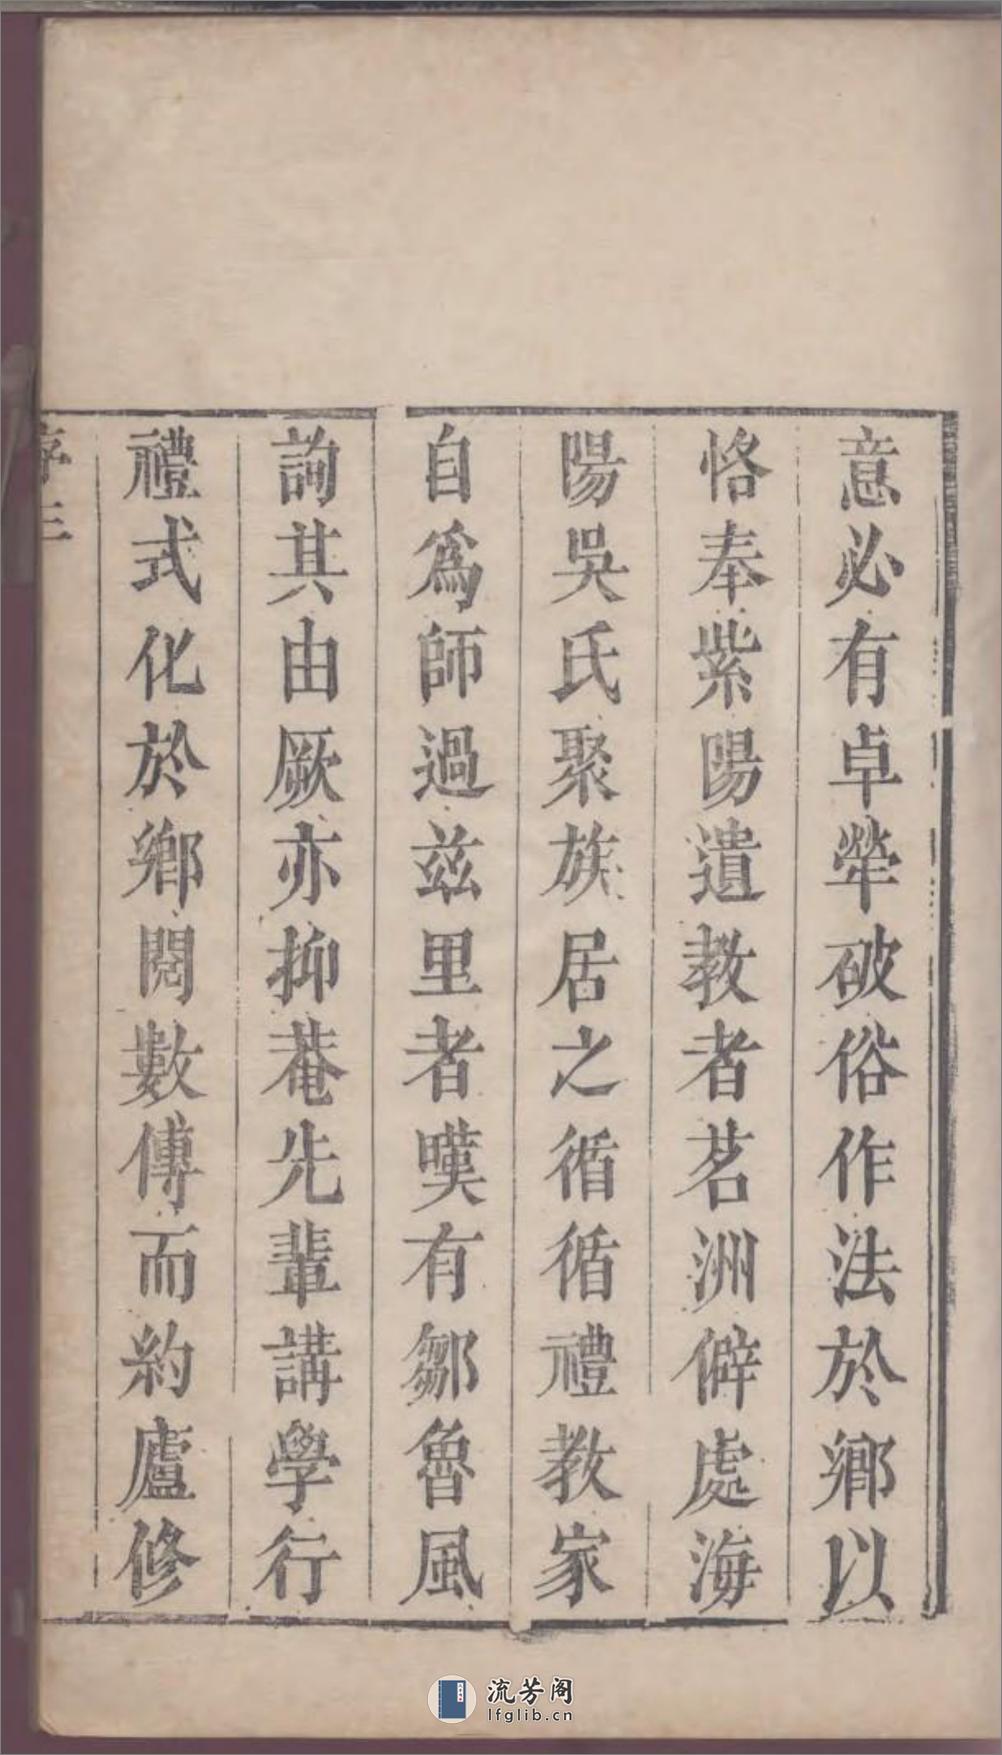 意必有卓犖破俗作法於鄉以
恪奉紫陽遺教者茗洲僻處海
陽吳氏聚族居之循循禮教家
自為師過茲里者嘆有鄒魯風
詢其由厥亦抑菴先輩講學行
禮式化於鄉閭數傳而約廬修
序 三
流芳阁
lfglib.cn